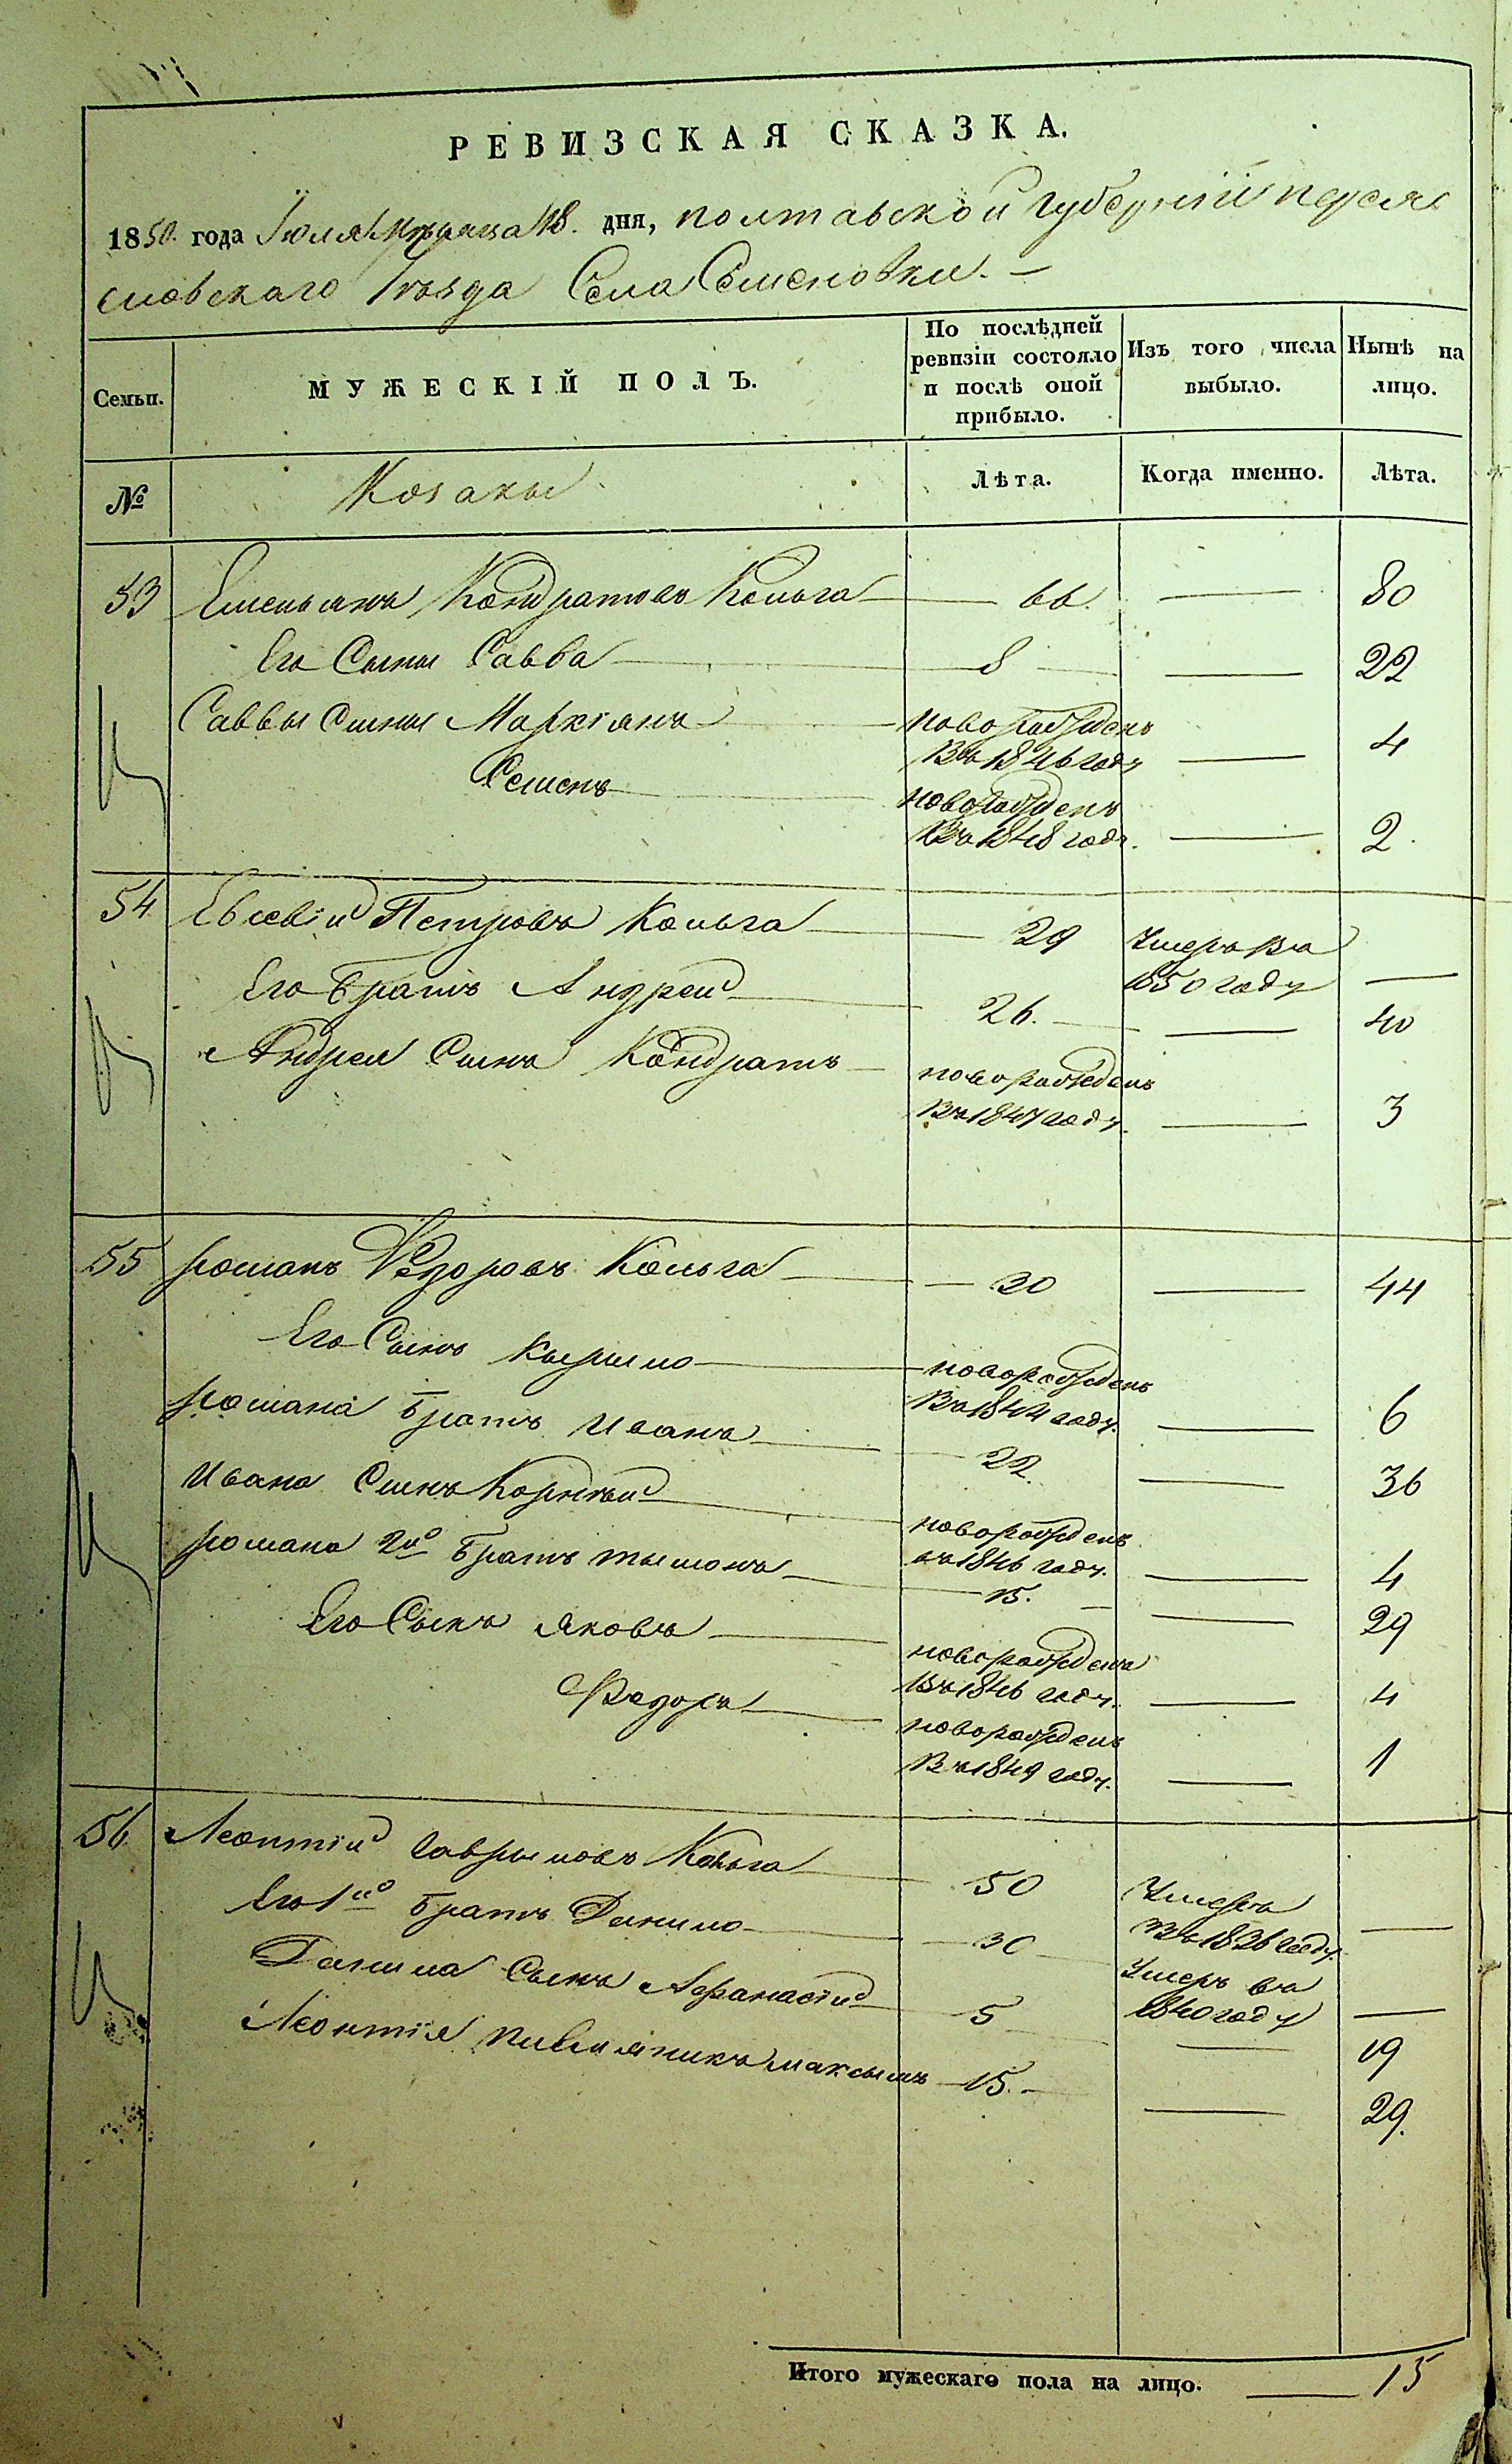 РЕВИЗСКАЯ СКАЗКА.
1850. года Іюля Мѣсяца 18. дня, полтавской Губерніи переяс
ловскаго Уѣзда Села Семеновки. —
Семьи.
МУЖЕСКІЙ ПОЛЪ.
По послѣдней
ревизіи состояло
и послѣ оной
прибыло.
Изъ того числа
выбыло.
Нынѣ на
лицо.
№
Козаки
Лѣта.
Когда именно.
Лѣта.
53 Емельянъ Кондратовъ Кольга — 66. — 80
Его Сынъ Савва — 8 — 22
Саввы Сыны Маркіянъ — новорожденъ
Въ 1846 году — 4
Семенъ — новорожденъ
Въ 1848 году. — 2.
54 Евсевій Петровъ Кольга — 29 Умеръ въ
1850 году —
Его Братъ Андрей — 26. — 40
Андрея Сынъ Кондратъ — новорожденъ
Въ 1847 году. — 3
55 романъ Федоровъ Кольга — 30 — 44
Его Сынъ Кырыло — новорожденъ
Въ 1844 году. — 6
романа Братъ Иванъ — 22 — 36
Ивана Сынъ Корнѣй — новорожденъ
въ 1846 году. — 4
романа 2й Братъ тымошъ — 15. — 29
Его Сынъ яковъ — новорожденъ
Въ 1846 году. — 4
Федоръ — новорожденъ
Въ 1849 году. — 1
56 Леонтій Гавриловъ Кольга — 50 Умеръ
Въ 1836 году. —
Его 1й Братъ Данило — 30 — Умеръ въ
1840 году —
Данила Сынъ Афанасій — 5 — 19
Леонтія племяникъ максымъ — 15. — 29.
Итого мужескаго пола на лицо. — 15